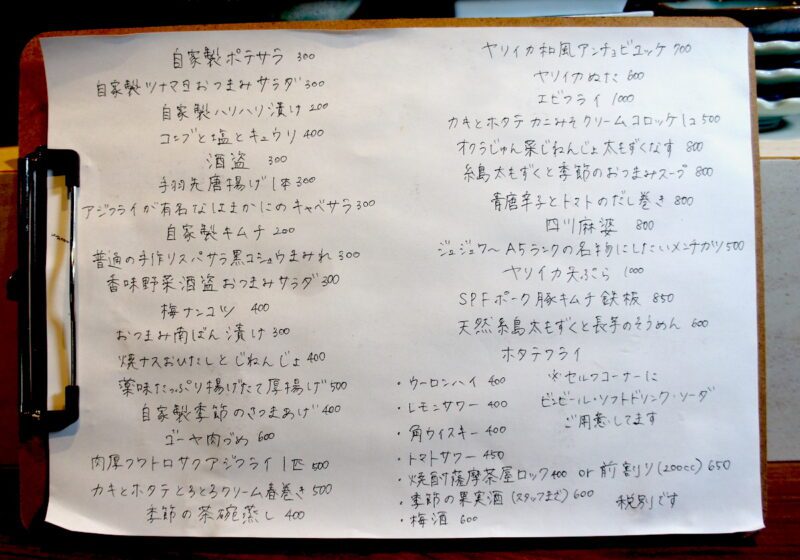 自家製ポテサラ 300
自家製ツナマヨおつまみサラダ 300
自家製ハリハリ漬け 200
コンブと塩とキュウリ 400
酒盗 300
手羽先唐揚げ1本 300
アジフライが有名なはまかにのキャベサラ 300
自家製キムチ 200
普通の手作りスパサラ黒コショウまみれ 300
香味野菜酒盗おつまみサラダ 300
梅ナンコツ 400
おつまみ南ばん漬け 300
焼ナスおひたしとじねんじょ 400
薬味たっぷり揚げたて厚揚げ 500
自家製季節のさつまあげ 400
ゴーヤ肉づめ 600
肉厚フワトロサクアジフライ1匹 500
カキとホタテとろとろクリーム春巻き 500
季節の茶碗蒸し 400
ヤリイカ和風アンチョビユッケ 700
ヤリイカぬた 600
エビフライ 1000
カキとホタテカニみそクリームコロッケ1コ 500
オクラじゅん菜じねんじょ太もずくなす 800
糸島太もずくと季節のおつまみスープ 800
青唐辛子とトマトのだし巻き 800
四川麻婆 800
ジュジュワ〜A5ランクの名物にしたいメンチカツ 500
ヤリイカ天ぷら 1000
SPFポーク豚キムチ鉄板 850
天然糸島太もずくと長芋のそうめん 600
ホタテフライ
・ウーロンハイ 400
・レモンサワー 400
・角ウイスキー 400
・トマトサワー 450
・焼酎薩摩茶屋ロック 400 or 前割り(200cc) 650
・季節の果実酒(スタッフまで) 600
・梅酒 600
※セルフコーナーに
ビンビール・ソフトドリンク・ソーダ
ご用意してます
税別です